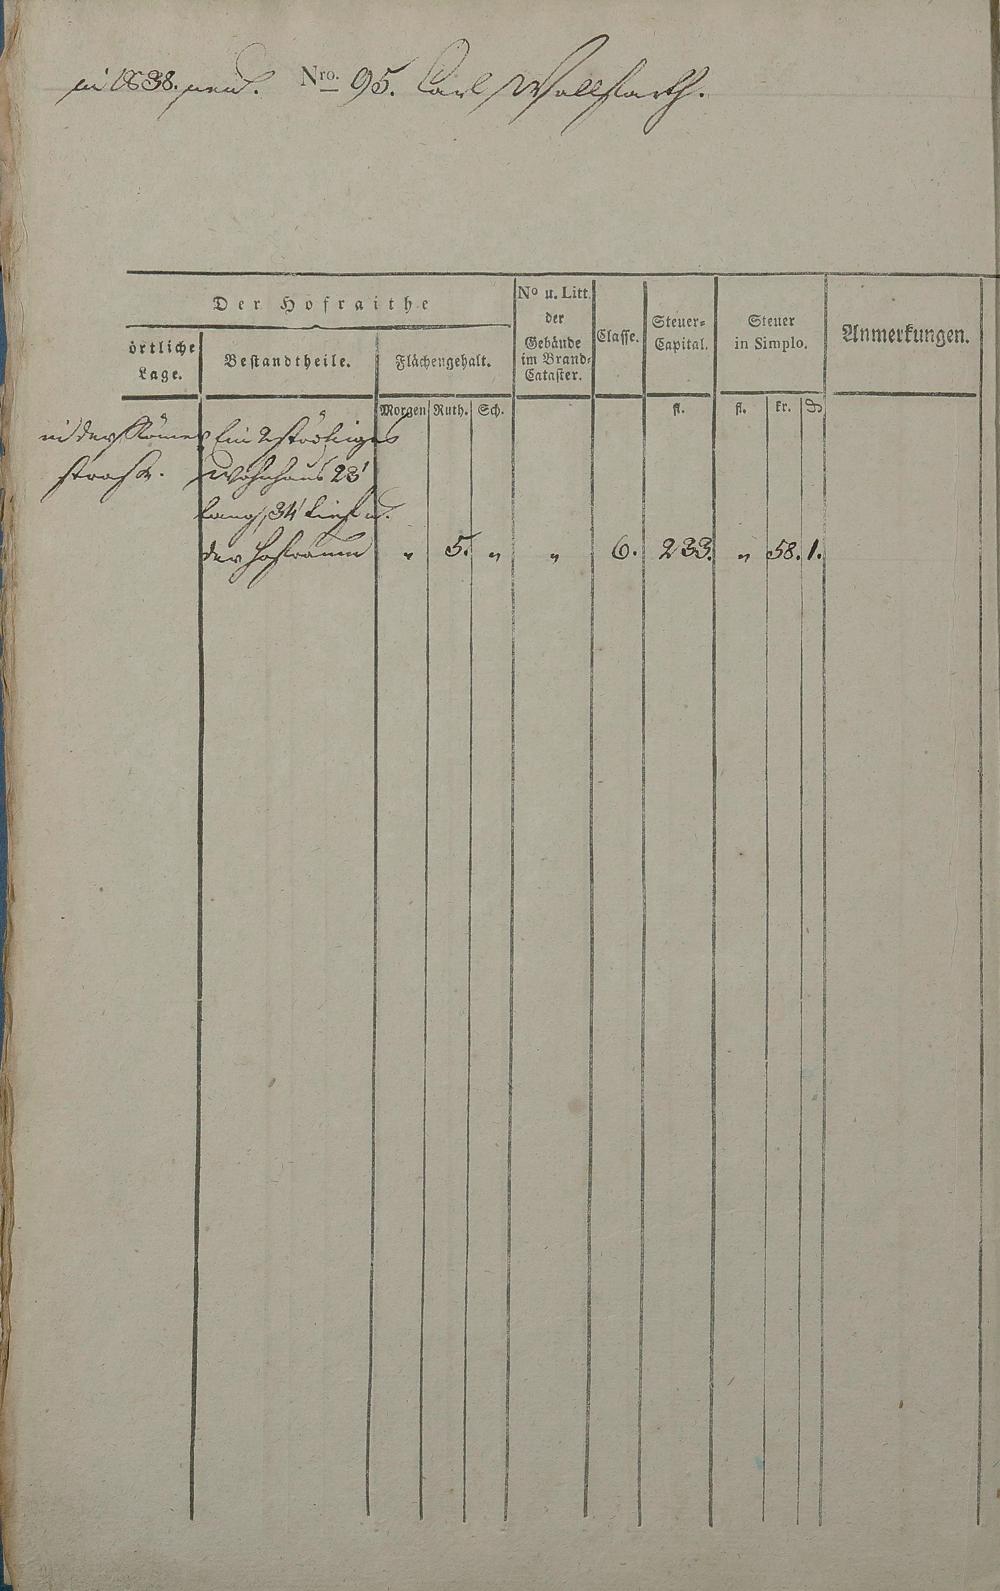 in 1838. neu. Nro. 95. Carl Wollfarth.
Der Hofraithe
örtliche Lage.
Bestandtheile.
Flächengehalt.
No u. Litt. der Gebäude im Brand-Cataster.
Classe.
Steuer-Capital.
Steuer in Simplo.
Anmerkungen.
Morgen Ruth. Sch. fl. fl. kr. ₰
in der Römer Ein 2stöckiges
strasse. Wohnhaus 23'
lang, 34' tief u.
der Hofraum „ 5. „ „ 6. 233. „ 58. 1.